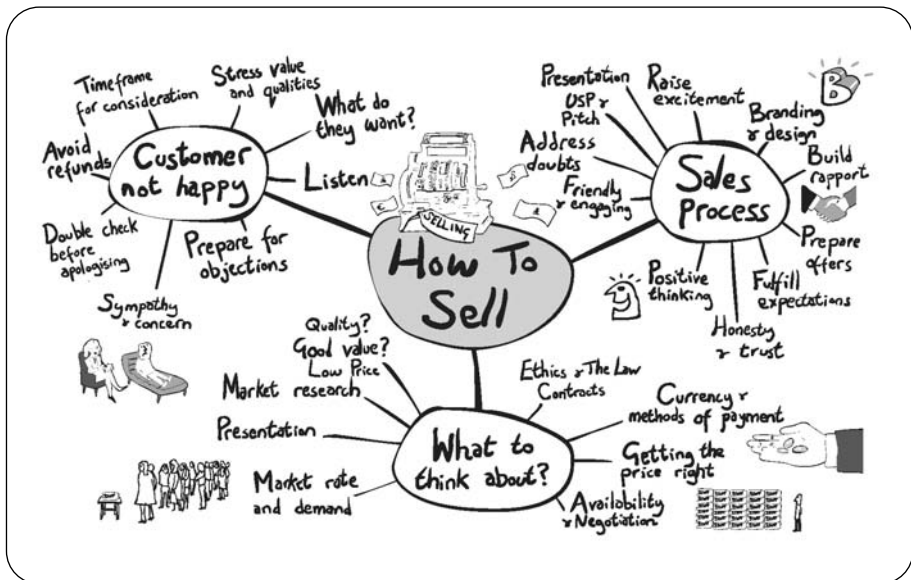 How To
Sell
SELLING
Customer
not happy
Timeframe
for consideration
Stress value
and qualities
What do
they want?
Listen
Prepare for
objections
Sympathy
& concern
Double check
before
apologising
Avoid
refunds
Sales
Process
Presentation
USP &
Pitch
Raise
excitement
Branding
& design
B
Build
rapport
Prepare
offers
Fulfill
expectations
Honesty
& trust
Positive
thinking
Friendly
& engaging
Address
doubts
What to
think about?
Quality?
Good value?
Low Price
Market
research
Presentation
Market rate
and demand
Ethics & The Law
Contracts
Currency &
methods of payment
Getting the
price right
Availability
& Negotiation